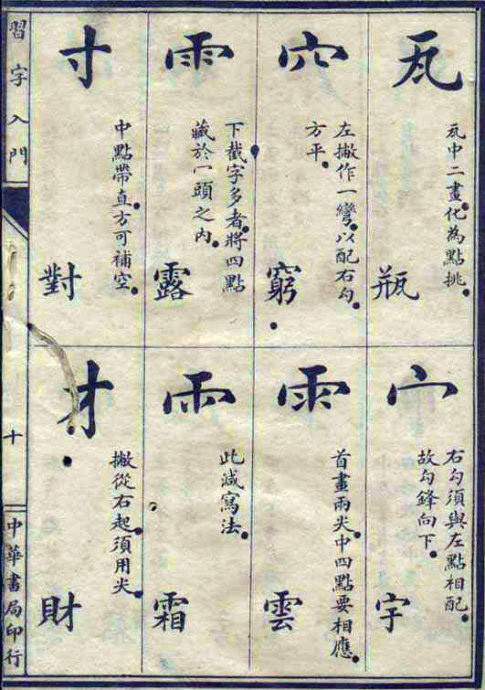 瓦
瓦中二畫化為點挑
瓶
穴
左撇作一彎以配右勾
方平
窮
雨
下截字多者將四點
藏於一頭之內
露
寸
中點帶直方可補空
對
宀
右勾須與左點相配
故勾鋒向下
字
雨
首畫兩尖中四點要相應
雲
雨
此減寫法
霜
才
撇從右起須用尖
財
習字入門
十
中華書局印行